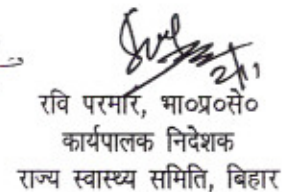 रवि परमार, भा०प्र०से०
कार्यपालक निदेशक
राज्य स्वास्थ्य समिति, बिहार